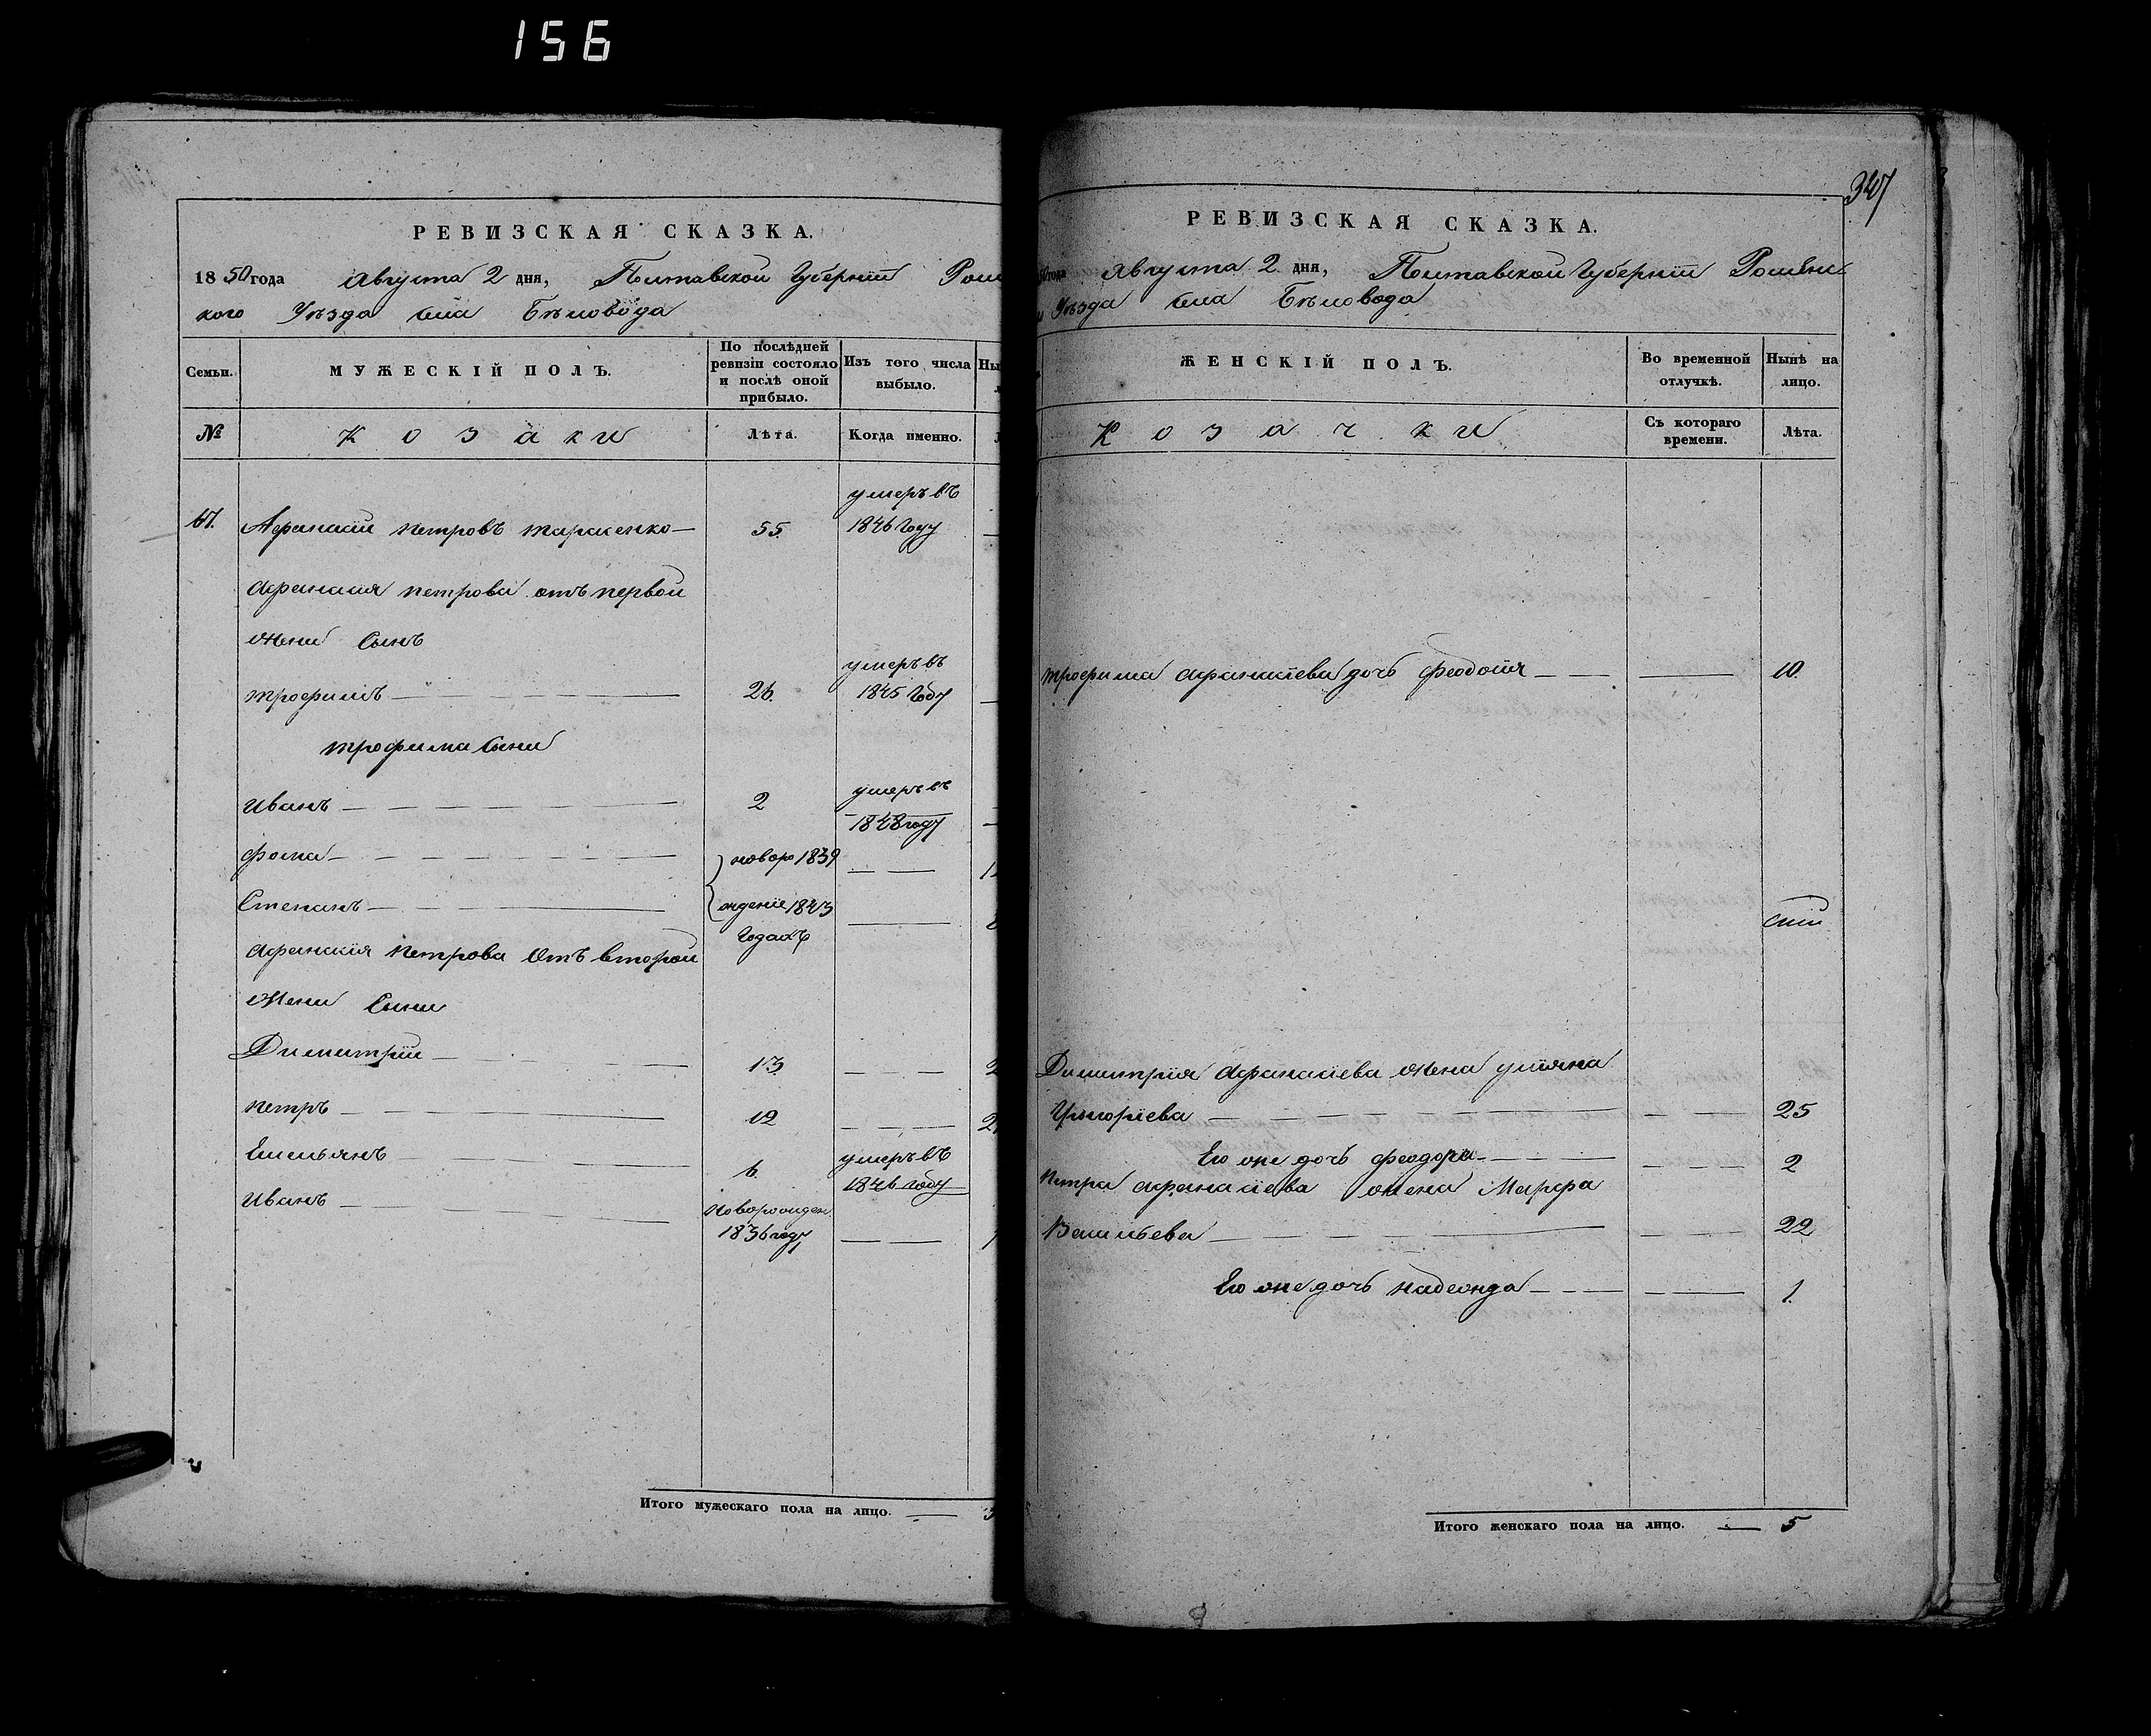 156
РЕВИЗСКАЯ СКАЗКА.
1850 года Августа 2 дня, Полтавской Губернiи Ром
кого Уѣзда села Бѣловода
Семьи.
МУЖЕСКІЙ ПОЛЪ.
По послѣдней ревизіи состояло и послѣ оной прибыло.
Изъ того числа выбыло.
№
Козаки
Лѣта.
Когда именно.
67. Афанасій Петровъ Тарасенко — 55. умеръ въ 1846 году
Афанасія Петрова отъ первой
жени Сынъ
Трофимъ — 26. умеръ въ 1845 Году
Трофима Сыни
Иванъ — 2 умеръ въ 1848 году
Фома — новоро 1839
Степанъ — ждение 1843
Годахъ
Афанасія Петрова Отъ второй
Жени Сыни
Димитрій — 13.
Петръ — 12
Емельянъ — 6. умеръ въ 1846 году
Иванъ — Новорожден. 1836 году
Итого мужескаго пола на лицо. —
347
РЕВИЗСКАЯ СКАЗКА.
года Августа 2 дня, Полтавской Губерніи Роменс
Уѣзда села Бѣловода
ЖЕНСКІЙ ПОЛЪ.
Во временной отлучкѣ.
Нынѣ на лицо.
Козачки
Съ котораго времени.
Лѣта.
Трофима Афанасіева дочь Феодосія — 10.
Димитрія Афанасіева Жена Уліяна
Григоріева — 25
Его же дочь Феодора — 2
Петра Афанасіева жена Марфа
Васильева — 22
Его же дочь Надежда — 1.
Итого женскаго пола на лицо. — 5